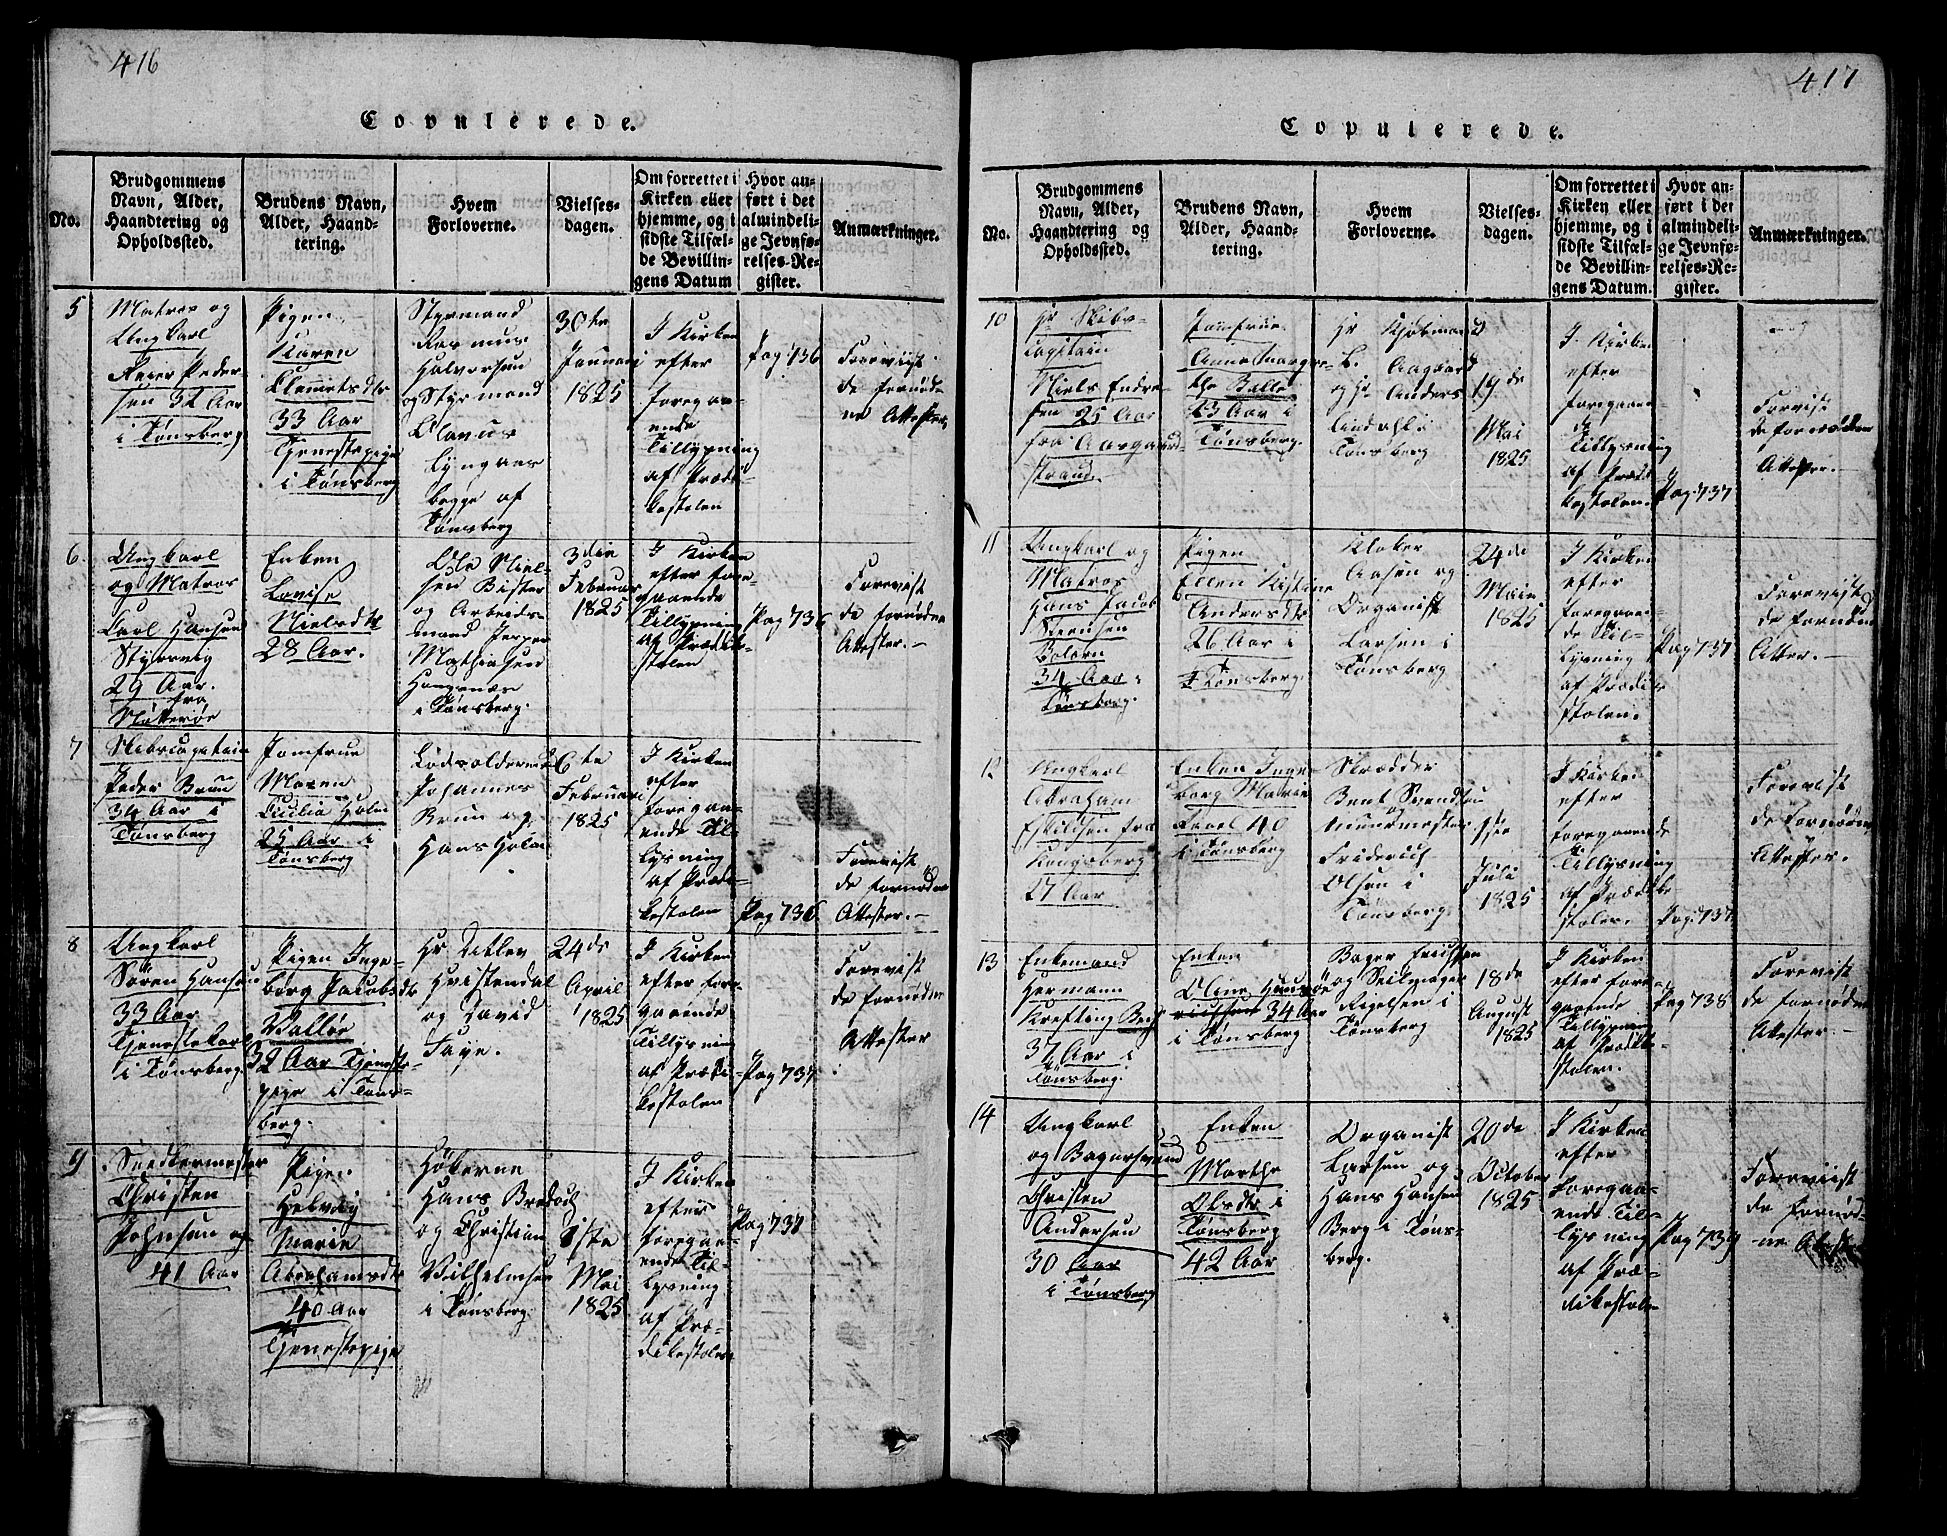 416
Copulerede.
No.
Brudgommens
Navn, Alder,
Haandtering og
Opholdssted.
Brudens Navn,
Alder, Haand-
tering.
Hvem
Forloverne.
Vielses-
dagen.
Om forrettet i
Kirken eller
hjemme, og i
sidste Tilfæl-
de Bevillin-
gens Datum
Hvor an-
ført i det
almindeli-
ge Jevnfø-
relses-Re-
gister.
Anmærkninger.
5
Matros og
Ungkarl
Peder-
sen 32 Aar
i Tønsberg
Pigen
Karen
Clemetsdtr
33 Aar
Tjenestepige
i Tønsberg
Styrmand
Rasmus
Halvorsen
og Styrmand
Olavus
Lyngaas
begge af
Tønsberg
30te
Januari
1825
I Kirken
efter
foregaa-
ende
Tillysning
af Prædi-
kestolen
Pag 736
Foreviist
de fornød-
ne Attester
6
Ungkarl
og Matros
Carl Hansen
29 Aar.
fra
Nøtterøe
Enken
Lovise
Nielsdtr
28 Aar.
Ole Niel-
sen
og Arbeids-
mand
Mathiasen
i Tønsberg.
3die
Februar
1825
I Kirken
efter fore-
gaaende
Tillysning
af Prædike-
stolen
Pag 736
Forevist
de fornødne
Attester. —
7
Skibscapitain
Peder Bruu
34 Aar i
Tønsberg
Jomfrue
Maren
Cicilia Holm
25 Aar i
Tønsberg
Lodsoldermand
Johannes
Bruu og
Hans Holm
6te
Februari
1825
I Kirken
efter
foregaa-
ende Til-
lysning
af Prædi-
kestolen
Pag 736
Forevist
de fornødne
Attester. —
8
Ungkarl
Sören Hansen
33 Aar
Tjenestekarl
i Tønsberg
Pigen Inge-
borg Jacobsdtr
Valløe
32 Aar Tjeneste-
pige i Tøns-
berg.
Hr Ditlev
Hvistendal
og David
Faye.
24de
April
1825
I Kirken
efter fore-
gaaende
Tillysning
af Prædi-
kestolen
Pag 737
Forevist
de fornødne
Attester
9
Snedkermester
Christen
Johnsen og
41 Aar
Pigen
Helvig
Marie
Abrahamsdtr
40 Aar
Tjenestepige
Hökerne
Hans Bredag
og Christian
Vilhelmsen
i Tønsberg.
1ste
Mai
1825
I Kirken
efter
foregaa-
ende Til-
lysning
af Præ-
dikestolen
Pag 737
417
Copulerede.
No.
Brudgommens
Navn, Alder,
Haandtering og
Opholdssted.
Brudens Navn,
Alder, Haand-
tering.
Hvem
Forloverne.
Vielses-
dagen.
Om forrettet i
Kirken eller
hjemme, og i
sidste Tilfæl-
de Bevillin-
gens Datum.
Hvor an-
ført i det
almindeli-
ge Jevnfø-
relses-Re-
gister.
Anmærkninger.
10
Hr Skibs-
capitain
Niels Endre-
sen 25 Aar
fra Aasgaard-
strand.
Jomfrue
Anne Margre-
the Balle
23 Aar i
Tønsberg.
Hr Kjøbmand
L. Aagaard
og Hr Anders
Lindahl i
Tønsberg
19de
Mai
1825
I Kirken
efter
foregaaen-
de
Tillysning
af Prædi-
kestolen.
Pag. 737
Forevist
de fornødne
Attester.
11
Ungkarl og
Matros
Hans Jacob
Sørensen
Bolærn
34 Aar i
Tønsberg.
Pigen
Ellen Kistine
Andersdtr
26 Aar i
Tønsberg.
Klokker
Aasen og
Organist
Larsen i
Tønsberg
24de
Maie
1825
I Kirken
efter
foregaaen-
de Til-
lysning
af Prædike-
stolen.
Pag 737
Forevist
de fornødne
Attester. —
12
Ungkarl
Abraham
Eskildsen fra
Kongsberg
27 Aar
Enken Inge-
borg Marie
40
i Tønsberg
Skrædder
Bent Svendsen
Friderich
Olsen i
Tønsberg
1ste
Juli
1825
I Kirken
efter
foregaaende
Tillysning
af Prædike-
stolen.
Pag. 737
Forevist
de fornødne
Attester.
13
Enkemand
Hermann
Krefting Berg
37 Aar i
Tønsberg.
Enken
Oline
34 Aar
i Tønsberg
Bager
og Seilmager
i
Tønsberg
18de
August
1825
I Kirken
efter fore-
gaaende
Tillysning
af Prædike-
stolen.
Pag 738
Forevist
de fornødne
Attester. —
14
Ungkarl
og Bagersvend
Christen
Andersen
30 Aar
i Tønsberg
Enken
Marthe
Olsdtr i
Tønsberg
42 Aar
Organist
Larsen og
Hans Hansen
Berg i Tøns-
berg.
20de
October
1825
I Kirken
efter
foregaa-
ende Til-
lysning
af Præ-
dikestolen
Pag 739
Foreviist
de fornød-
ne